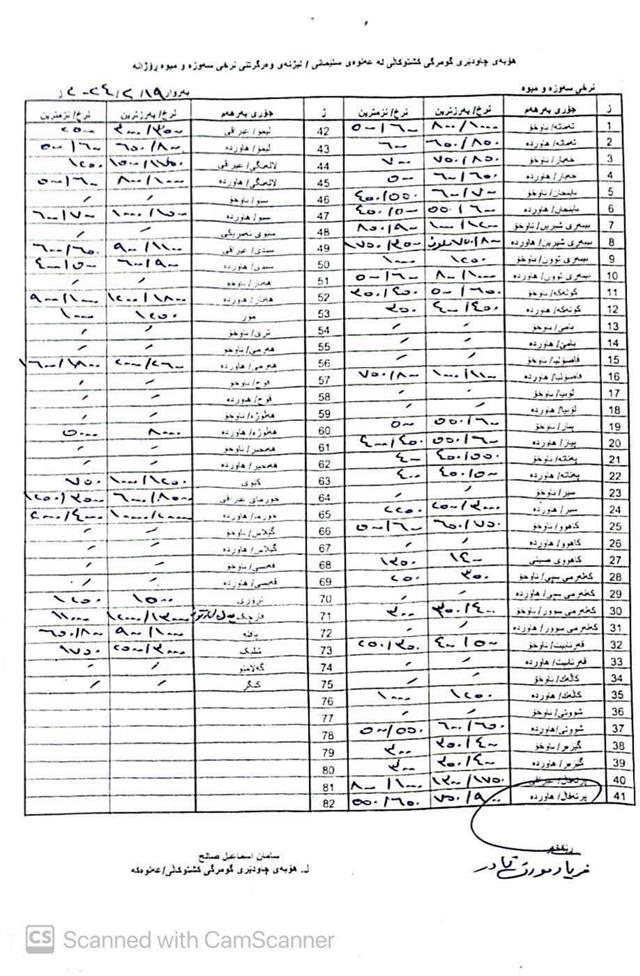 هۆبەی چاودێری گومرگی کشتوکاڵی لە عەلوەی سلێمانی / لیژنەی وەرگرتنی نرخی سەوزە و میوە ڕۆژانە
نرخی سەوزە و میوە
ز جۆری بەرهەم نرخ/ بەرزترین نرخ/ نزمترین
1 تەماتە/ ناوخۆ ٨٠٠/١٠٠٠ ٥٠٠/٦٠٠
2 تەماتە/ هاوردە ٦٥٠/٨٥٠ ٦٠٠
3 خەیار/ ناوخۆ ٧٥٠/٨٥٠ ٧٠٠
4 خەیار/ هاوردە ٦٠٠/٦٥٠ ٥٠٠
5 باینجان/ ناوخۆ ٦٠٠/٧٠٠
6 باینجان/ هاوردە ٥٥٠/٦٠٠ ٤٥٠/٥٠٠
7 بیبەری شیرین/ ناوخۆ ١٠٠٠/١٢٠٠ ٨٥٠/٩٠٠
8 بیبەری شیرین/ هاوردە
9 بیبەری توون/ ناوخۆ ١٢٥٠ ١٠٠٠
10 بیبەری توون/ هاوردە ٨٠٠/١٠٠٠ ٥٠٠/٦٠٠
11 کولەکە/ ناوخۆ ٥٠٠/٦٥٠ ٣٥٠/٤٥٠
12 کولەکە/ هاوردە ٤٠٠/٤٥٠ ٣٥٠
13 بامێ/ ناوخۆ
14 بامێ/ هاوردە
15 فاسۆلیا/ ناوخۆ
16 فاسۆلیا/ هاوردە ١٠٠٠/١١٠٠ ٧٥٠/٨٠٠
17 لۆبیا/ ناوخۆ
18 لۆبیا/ هاوردە
19 پیاز/ ناوخۆ ٥٥٠/٦٠٠ ٥٠٠
20 پیاز/ هاوردە ٥٥٠/٦٠٠ ٤٠٠/٤٥٠
21 پەتاتە/ ناوخۆ ٤٠٠
22 پەتاتە/ هاوردە ٤٥٠/٥٠٠ ٤٠٠
23 سیر/ ناوخۆ
24 سیر/ هاوردە ٢٥٠٠/٣٠٠٠ ٢٢٥٠
25 کاهوو/ ناوخۆ ٦٥٠/٧٥٠ ٥٠٠/٦٠٠
26 کاهوو/ هاوردە
27 کاهووی صینی ١٤٠٠ ١٣٥٠
28 کەلەرمی سپی/ ناوخۆ ٣٥٠ ٢٥٠
29 کەلەرمی سپی/ هاوردە
30 کەلەرمی سوور/ ناوخۆ ٣٥٠/٤٠٠ ٣٠٠
31 کەلەرمی سوور/ هاوردە
32 قەرنابیت/ ناوخۆ ٤٠٠/٥٠٠ ٢٥٠/٣٥٠
33 قەرنابیت/ هاوردە
34 کاڵەک/ ناوخۆ
35 کاڵەک/ هاوردە ١٢٥٠ ١٠٠٠
36 شووتی/ ناوخۆ
37 شووتی/ هاوردە ٦٠٠/٦٥٠ ٥٠٠/٥٥٠
38 گێزەر/ ناوخۆ ٣٥٠/٤٠٠ ٣٠٠
39 گێزەر/ هاوردە ٣٥٠/٤٠٠ ٣٠٠
40 پرتەقاڵ/ عیراقی ١٣٠٠/١٧٥٠ ٨٠٠/١٠٠٠
41 پرتەقاڵ/ هاوردە ٧٥٠/٩٠٠ ٥٥٠/٦٥٠
ز جۆری بەرهەم نرخ/ بەرزترین نرخ/ نزمترین
42 لیمۆ/ عیراقی ٣٠٠٠/٣٥٠٠ ٢٥٠٠
43 لیمۆ/ هاوردە ٦٥٠/٨٠٠ ٥٠٠/٦٠٠
44 لالەنگی/ عیراقی ١٥٠٠/١٧٥٠ ١٢٥٠
45 لالەنگی/ هاوردە ٨٠٠/١٠٠٠ ٥٠٠/٦٠٠
46 سێو/ ناوخۆ
47 سێو/ هاوردە ٦٠٠/٧٠٠
48 سێوی ئەمریکی
49 سندی/ عیراقی ٩٠٠/١١٠٠ ٦٠٠/٦٥٠
50 سندی/ هاوردە ٦٠٠/٩٠٠ ٤٠٠/٥٠٠
51 هەنار/ ناوخۆ
52 هەنار/ هاوردە ١٢٠٠/١٨٠٠ ٩٠٠/١٠٠٠
53 مۆز ١٢٥٠ ١٠٠٠
54 ترێ/ ناوخۆ
55 هەرمێ/ ناوخۆ
56 هەرمێ/ هاوردە ٢٠٠٠/٢٦٠٠ ١٦٠٠/١٨٠٠
57 قۆخ/ ناوخۆ
58 قۆخ/ هاوردە
59 هەڵوژە/ ناوخۆ
60 هەڵوژە/ هاوردە ٨٠٠٠ ٥٠٠٠
61 هەنجیر/ ناوخۆ
62 هەنجیر/ هاوردە
63 کیوی ١٠٠٠/١٢٥٠ ٧٥٠
64 خورمای عیراقی
65 خورما/ هاوردە
66 گێلاس/ ناوخۆ
67 گێلاس/ هاوردە
68 قەیسی/ ناوخۆ
69 قەیسی/ هاوردە
70 ترۆزی ١٥٠٠ ١٢٥٠
71 قارچک
72 باقلە ٩٠٠/١٠٠٠ ٦٥٠/٨٠٠
73 شلیک ٢٥٠٠/٣٠٠٠ ١٧٥٠
74 گەلامێو
75 کنگر
76
77
78
79
80
81
82
سامان اسماعیل صالح
ل. هۆبەی چاودێری گومرگی کشتوکاڵی/عەلوەکە
CS Scanned with CamScanner